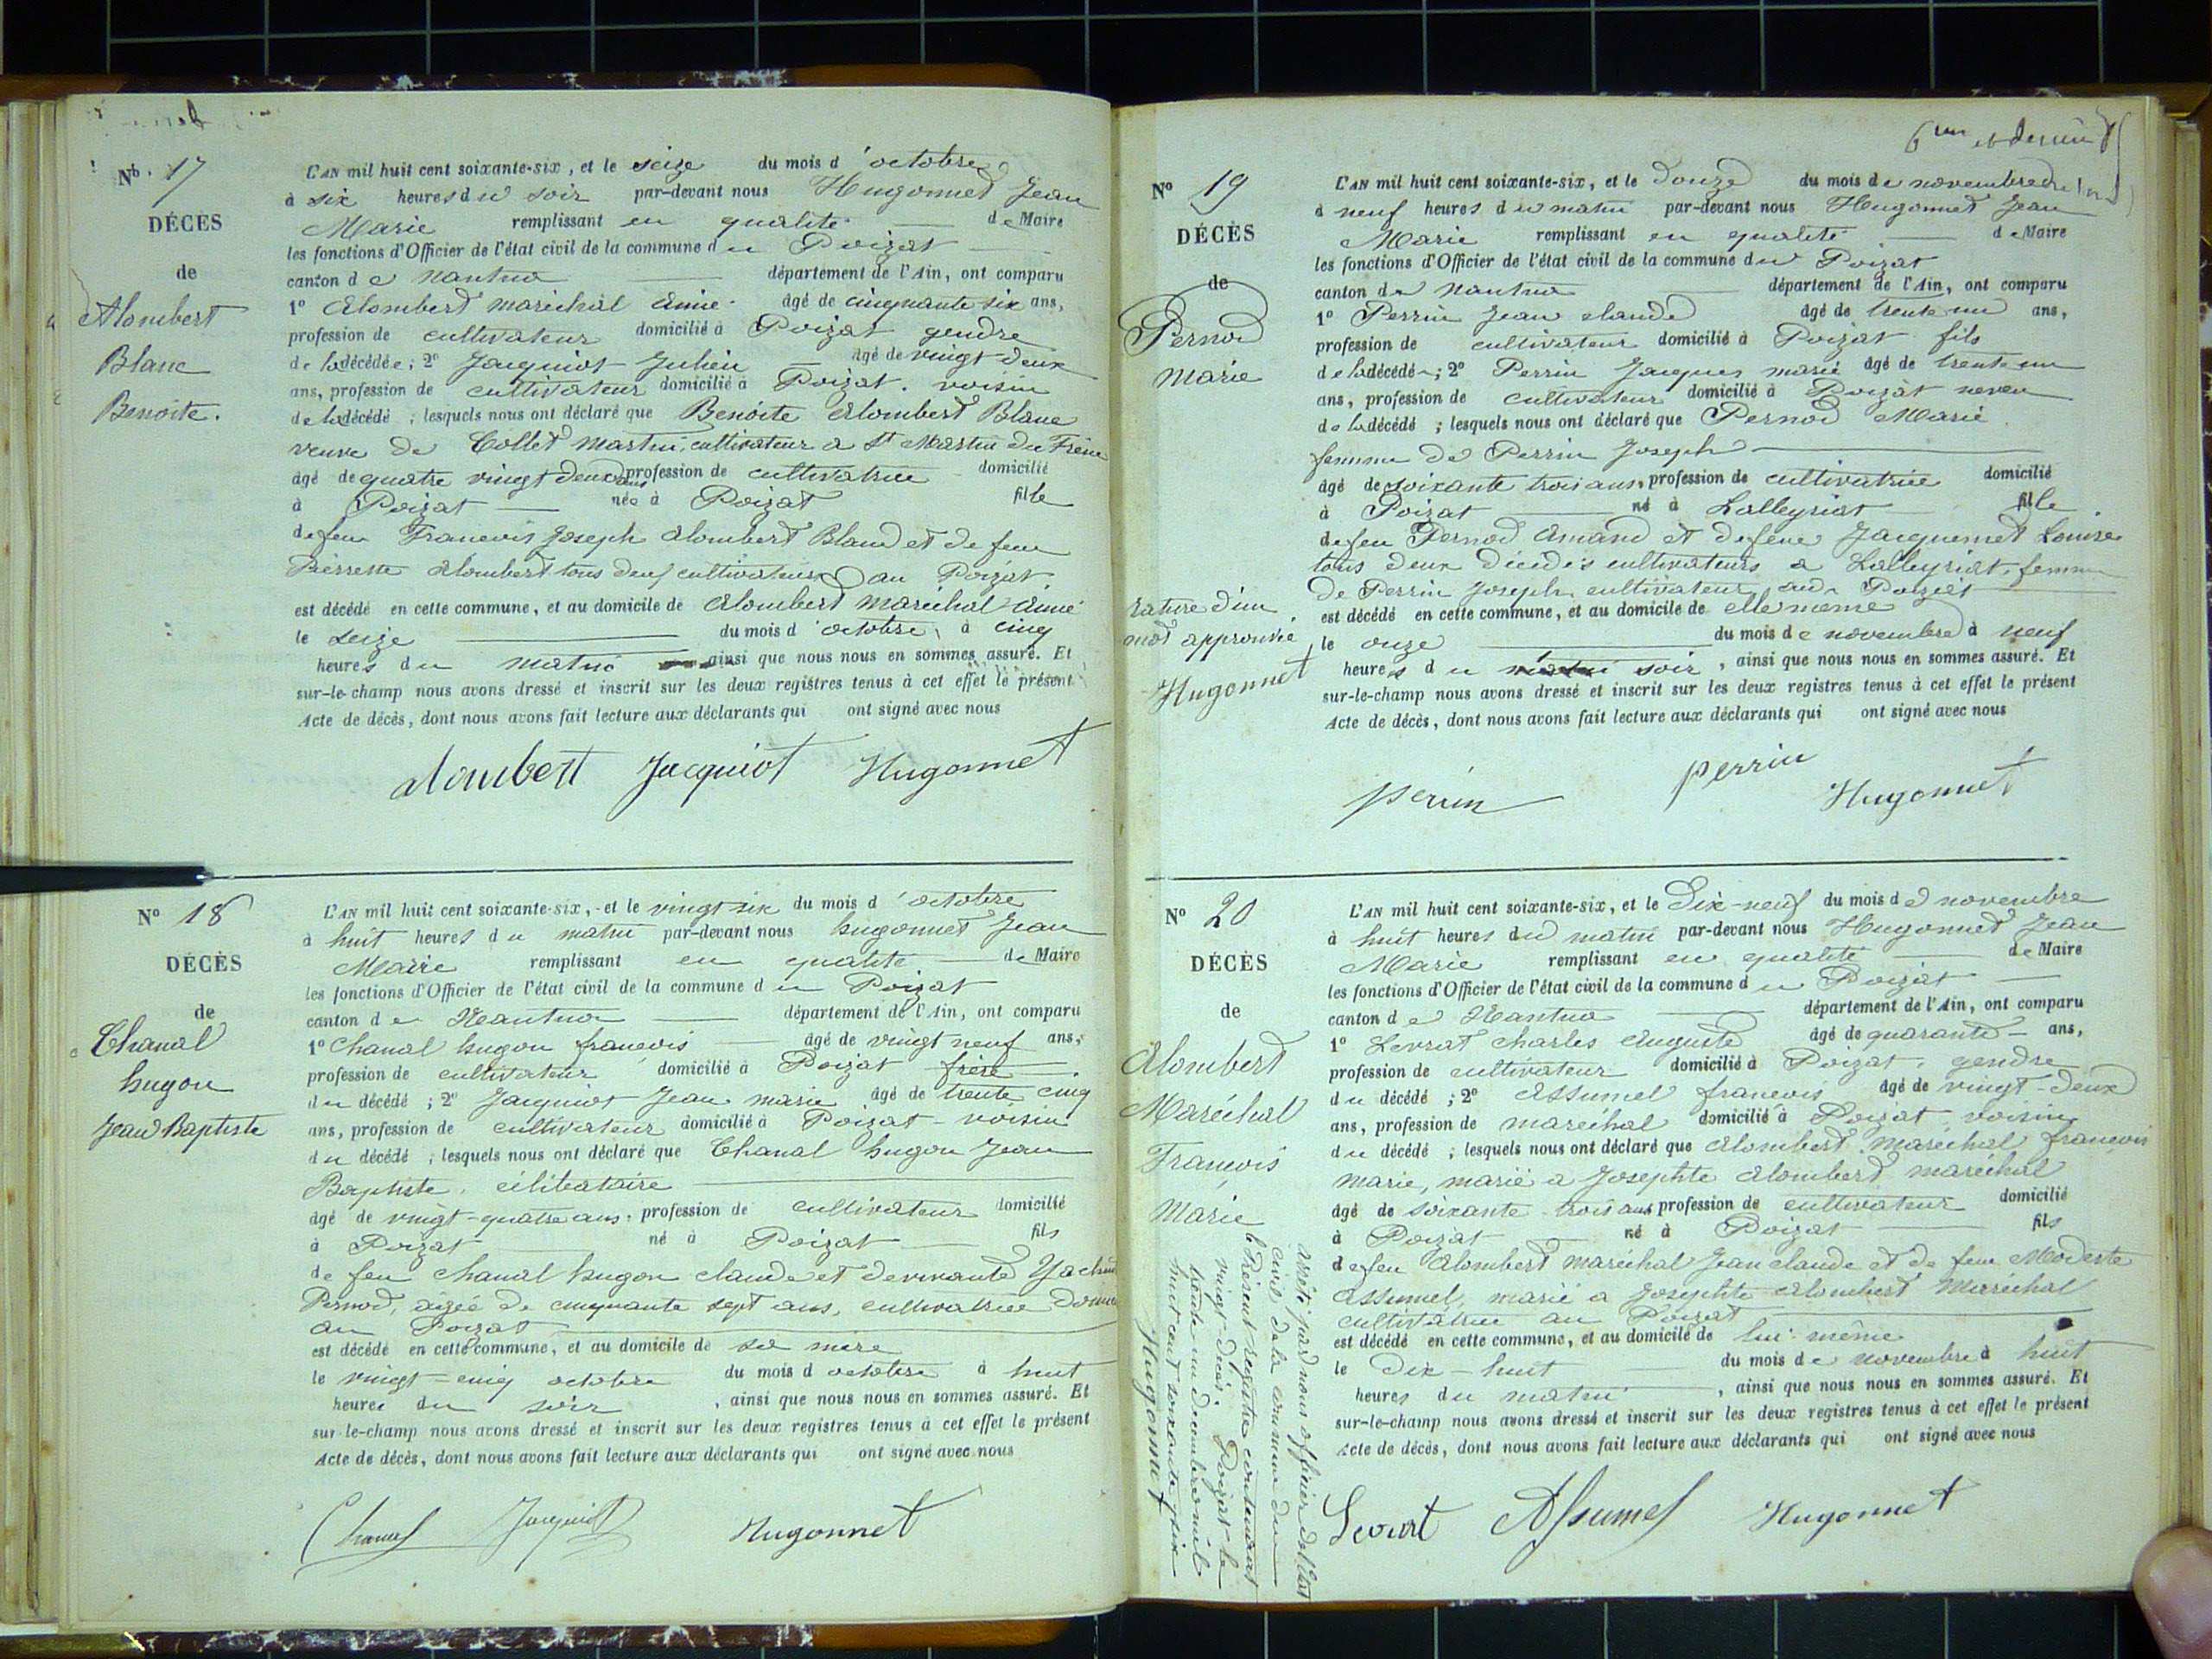 Nº. 17
DÉCÈS
de
Alombert
Blanc
Benoite.
L'AN mil huit cent soixante-six, et le seize du mois d'octobre
à six heures du soir par-devant nous Hugonnet Jean
Marie remplissant en qualité de Maire
les fonctions d'Officier de l'état civil de la commune du Poizat
canton de Nantua département de l'Ain, ont comparu
1º Alombert maréchal Aimé âgé de cinquante six ans,
profession de cultivateur domicilié à Poizat gendre
de la décédée; 2º Jacquiot Julien âgé de vingt-deux
ans, profession de cultivateur domicilié à Poizat. voisin
de la décédé; lesquels nous ont déclaré que Benoite Alombert Blanc
veuve de Collet Martin, cultivateur a St Martin du Frêne
âgé de quatre vingt deux ans profession de cultivatrice domicilié
à Poizat née à Poizat fille
de feu Francois Joseph Alombert Blanc et de feue
Pierrette Alombert tous deux cultivateurs au Poizat.
est décédé en cette commune, et au domicile de Alombert maréchal Aimé
le seize du mois d'octobre, à cinq
heures du matin ainsi que nous nous en sommes assuré. Et
sur-le-champ nous avons dressé et inscrit sur les deux registres tenus à cet effet le présent
Acte de décès, dont nous avons fait lecture aux déclarants qui ont signé avec nous
alombert Jacquiot Hugonnet
Nº 18
DÉCÈS
de
Chanal
hugon
Jean Baptiste
L'AN mil huit cent soixante-six, et le vingt six du mois d'octobre
à huit heures du matin par-devant nous hugonnet Jean
Marie remplissant en qualité de Maire
les fonctions d'Officier de l'état civil de la commune du Poizat
canton de Nantua département de l'Ain, ont comparu
1º Chanal hugon françois âgé de vingt neuf ans,
profession de cultivateur domicilié à Poizat frère
du décédé; 2º Jacquiot Jean marie âgé de trente cinq
ans, profession de cultivateur domicilié à Poizat - voisin
du décédé; lesquels nous ont déclaré que Chanal hugon Jean
Baptiste, célibataire
âgé de vingt-quatre ans. profession de cultivateur domicilié
à Poizat né à Poizat fils
de feu Chanal hugon claude et de vivante
Pernod, agée de cinquante sept ans, cultivatrice
au Poizat
est décédé en cette commune, et au domicile de sa mère
le vingt-cinq octobre du mois d octobre à huit
heures du soir, ainsi que nous nous en sommes assuré. Et
sur-le-champ nous avons dressé et inscrit sur les deux registres tenus à cet effet le présent
Acte de décès, dont nous avons fait lecture aux déclarants qui ont signé avec nous
Chanal Jacquiot Hugonnet
6me et dernier
Nº 19
DÉCÈS
de
Pernod
Marie
L'AN mil huit cent soixante-six, et le douze du mois de novembre
à neuf heures du matin par-devant nous Hugonnet Jean
Marie remplissant en qualité de Maire
les fonctions d'Officier de l'état civil de la commune du Poizat
canton de Nantua département de l'Ain, ont comparu
1º Perrin Jean claude âgé de trente un ans,
profession de cultivateur domicilié à Poizat fils
de la décédée; 2º Perrin Jacques marie âgé de trente un
ans, profession de cultivateur domicilié à Poizat neveu
de la décédé; lesquels nous ont déclaré que Pernod Marie
femme de Perrin Joseph
âgé de soixante trois ans, profession de cultivatrice domicilié
à Poizat né à Lalleyriat fille
de feu Pernod Amand et de feue Jacquemet Louise
tous deux décédés cultivateurs a Lalleyriat, femme
de Perrin Joseph cultivateur Poizat
est décédé en cette commune, et au domicile de elle même
le onze du mois de novembre à neuf
heures du matin soir, ainsi que nous nous en sommes assuré. Et
sur-le-champ nous avons dressé et inscrit sur les deux registres tenus à cet effet le présent
Acte de décès, dont nous avons fait lecture aux déclarants qui ont signé avec nous
rature d'un
mot approuvée
Hugonnet
perrin perrin Hugonnet
Nº 20
DÉCÈS
de
Alombert
Maréchal
François
Marie
L'AN mil huit cent soixante-six, et le Dix-neuf du mois de novembre
à huit heures du matin par-devant nous Hugonnet Jean
Marie remplissant en qualité de Maire
les fonctions d'Officier de l'état civil de la commune du Poizat
canton de Nantua département de l'Ain, ont comparu
1º Levrat Charles Auguste âgé de quarante ans,
profession de cultivateur domicilié à Poizat, gendre
du décédé; 2º Assumel françois âgé de vingt-deux
ans, profession de maréchal domicilié à Poizat voisin
du décédé; lesquels nous ont déclaré que Alombert maréchal françois
marie, marié a Josephte Alombert maréchal
âgé de soixante-trois ans profession de cultivateur domicilié
à Poizat né à Poizat fils
de feu Alombert maréchal Jean claude et de feue Modeste
Assumel, marié a Josephte Alombert Maréchal
cultivatrice au Poizat
est décédé en cette commune, et au domicile de lui-même
le Dix-huit du mois de novembre à huit
heures du matin, ainsi que nous nous en sommes assuré. Et
sur-le-champ nous avons dressé et inscrit sur les deux registres tenus à cet effet le présent
Acte de décès, dont nous avons fait lecture aux déclarants qui ont signé avec nous
Levrat Assumel Hugonnet
arrêté par nous officier de l'état
civil de la commune du
le Présent registre contenant
vingt décès. Poizat le
trente un décembre mil
huit cent soixante six
Hugonnet